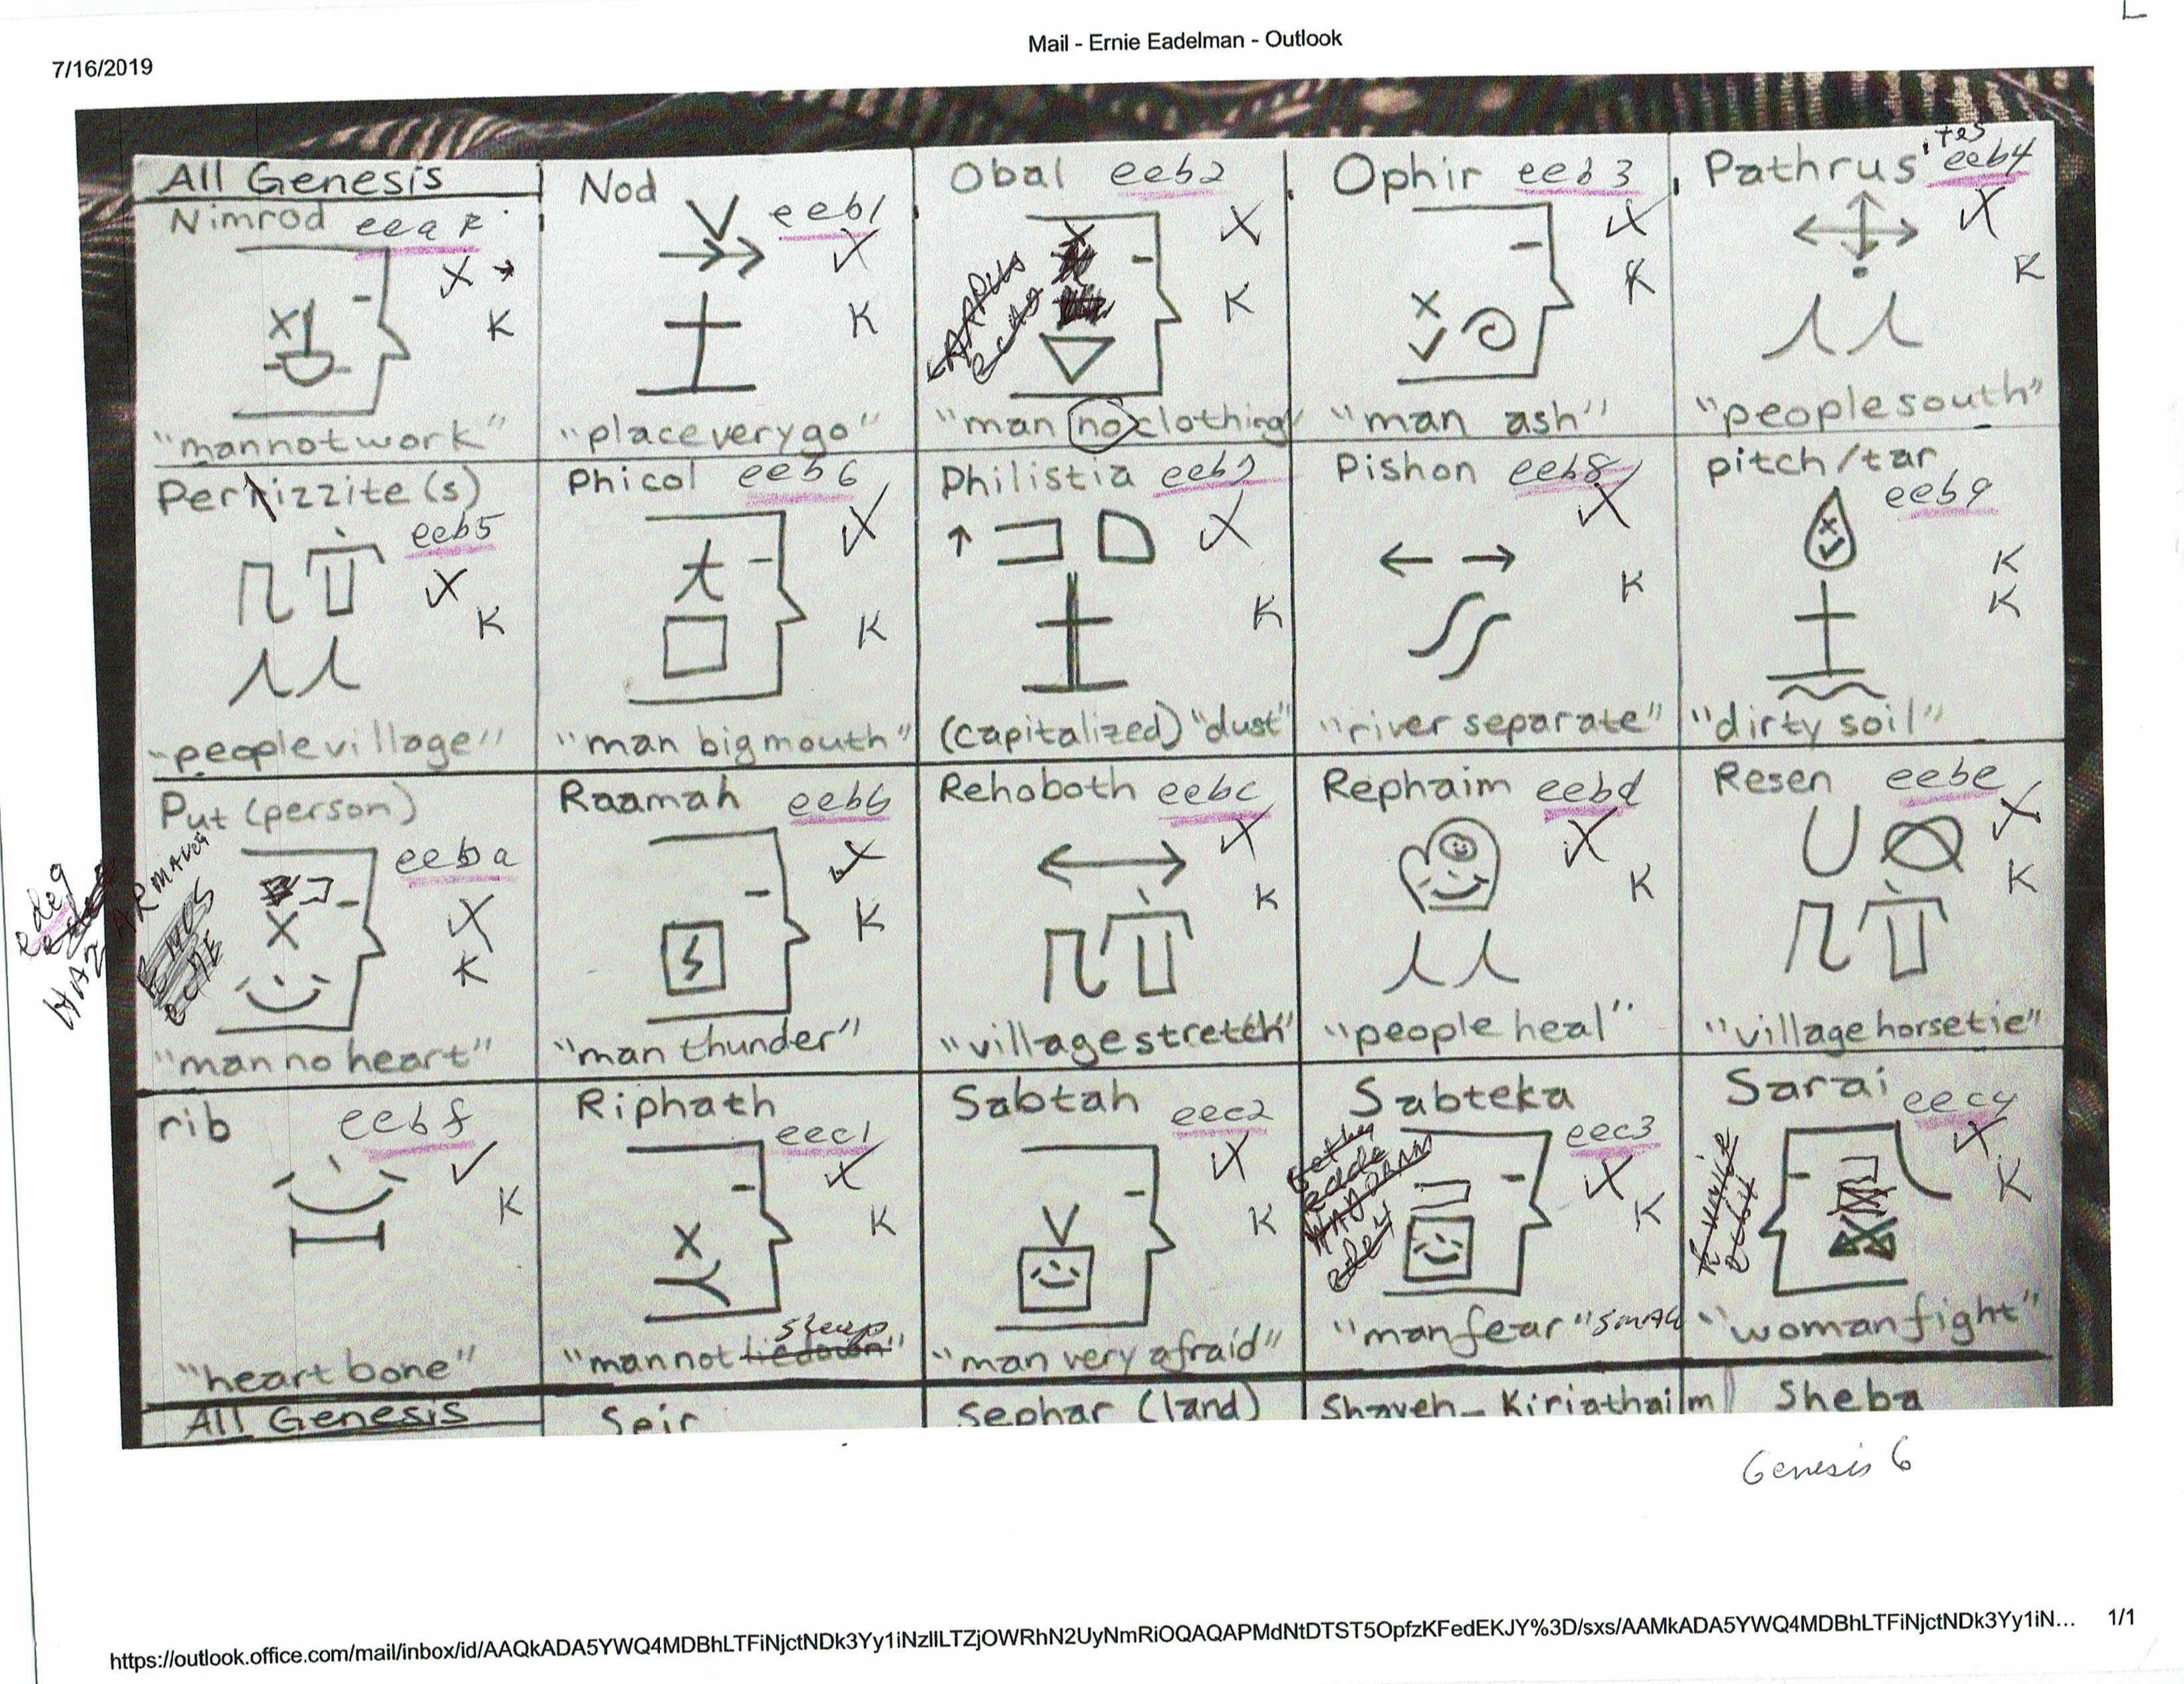 7/16/2019
Mail - Ernie Eadelman - Outlook
All Genesis
Nimrod
X
K
"man not work"
Nod eeb1
K
"place very go"
Obal eeb2
X
K
"man no clothing"
Ophir eeb3
K
"man ash"
Pathrus'ites eeb4
K
"people south"
Perizzite(s)
eeb5
K
"people village"
Phicol eeb6
K
"man big mouth"
Philistia
K
(capitalized) "dust"
Pishon eeb8
K
"river separate"
pitch/tar
eeb9
K
K
"dirty soil"
Put (person)
eeba
K
"man no heart"
Raamah eebb
K
"man thunder"
Rehoboth eebc
K
"village stretch"
Rephaim eebd
K
"people heal"
Resen eebe
K
"village horsetie"
rib eebf
K
"heart bone"
Riphath
eec1
K
"man not lie down" sleep
Sabtah eec2
K
"man very afraid"
Sabteka
eec3
K
"man fear" small
Sarai eec4
K
"woman fight"
All Genesis
Seir
Sephar (land)
Shaveh-Kiriathaim
Sheba
Genesis 6
https://outlook.office.com/mail/inbox/id/AAQkADA5YWQ4MDBhLTFiNjctNDk3Yy1iNzllLTZjOWRhN2UyNmRiOQAQAPMdNtDTST5OpfzKFedEKJY%3D/sxs/AAMkADA5YWQ4MDBhLTFiNjctNDk3Yy1iN... 1/1